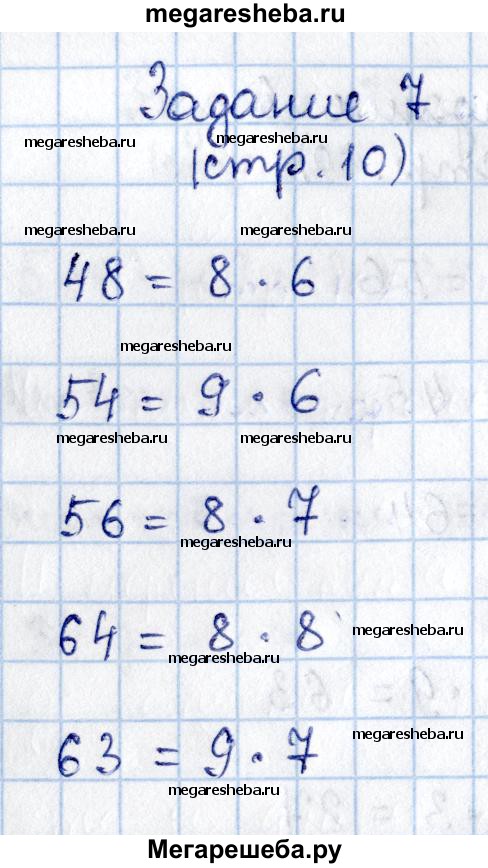 megaresheba.ru
Задание 7
megaresheba.ru megaresheba.ru
(стр. 10)
megaresheba.ru megaresheba.ru
48 = 8 · 6
megaresheba.ru
54 = 9 · 6
megaresheba.ru megaresheba.ru
56 = 8 · 7
megaresheba.ru
64 = 8 · 8
megaresheba.ru
megaresheba.ru
63 = 9 · 7
megaresheba.ru
megaresheba.ru
Мегарешеба.ру